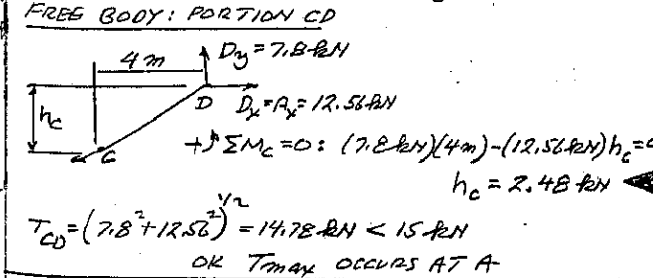 FREE BODY: PORTION CD
4 m
Dy = 7.8 kN
hc
D Dx = Ax = 12.56 kN
C
+↺ ΣMc = 0: (7.8 kN)(4m) - (12.56 kN) hc = 0
hc = 2.48 kN ◀
TCD = (7.8² + 12.56²)^1/2 = 14.78 kN < 15 kN
OK Tmax OCCURS AT A